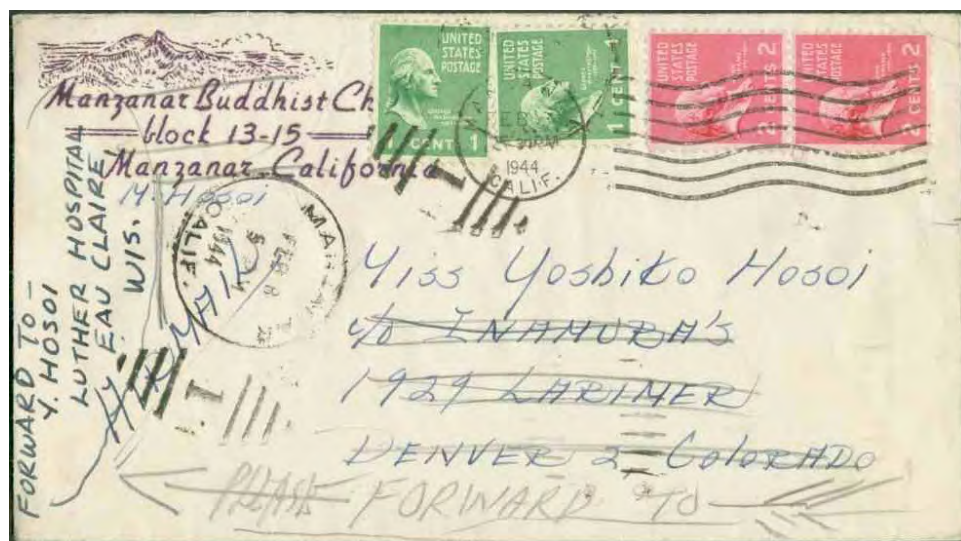 Manzanar Buddhist Ch
block 13-15
Manzanar, California
M. Hosoi
UNITED
STATES
POSTAGE
CENT 1
UNITED
STATES
POSTAGE
1 CENT 1
UNITED
STATES
POSTAGE
2 CENTS 2
UNITED
STATES
POSTAGE
2 CENTS 2
1944
CALIF.
FEB 8
1944
CALIF.
1
1
Miss Yoshiko Hosoi
c/o INAMURA'S
1929 LARIMER
DENVER 2 COLORADO
PLEASE FORWARD TO
FORWARD TO -
Y. HOSOI
LUTHER HOSPITAL
EAU CLAIRE
WIS.